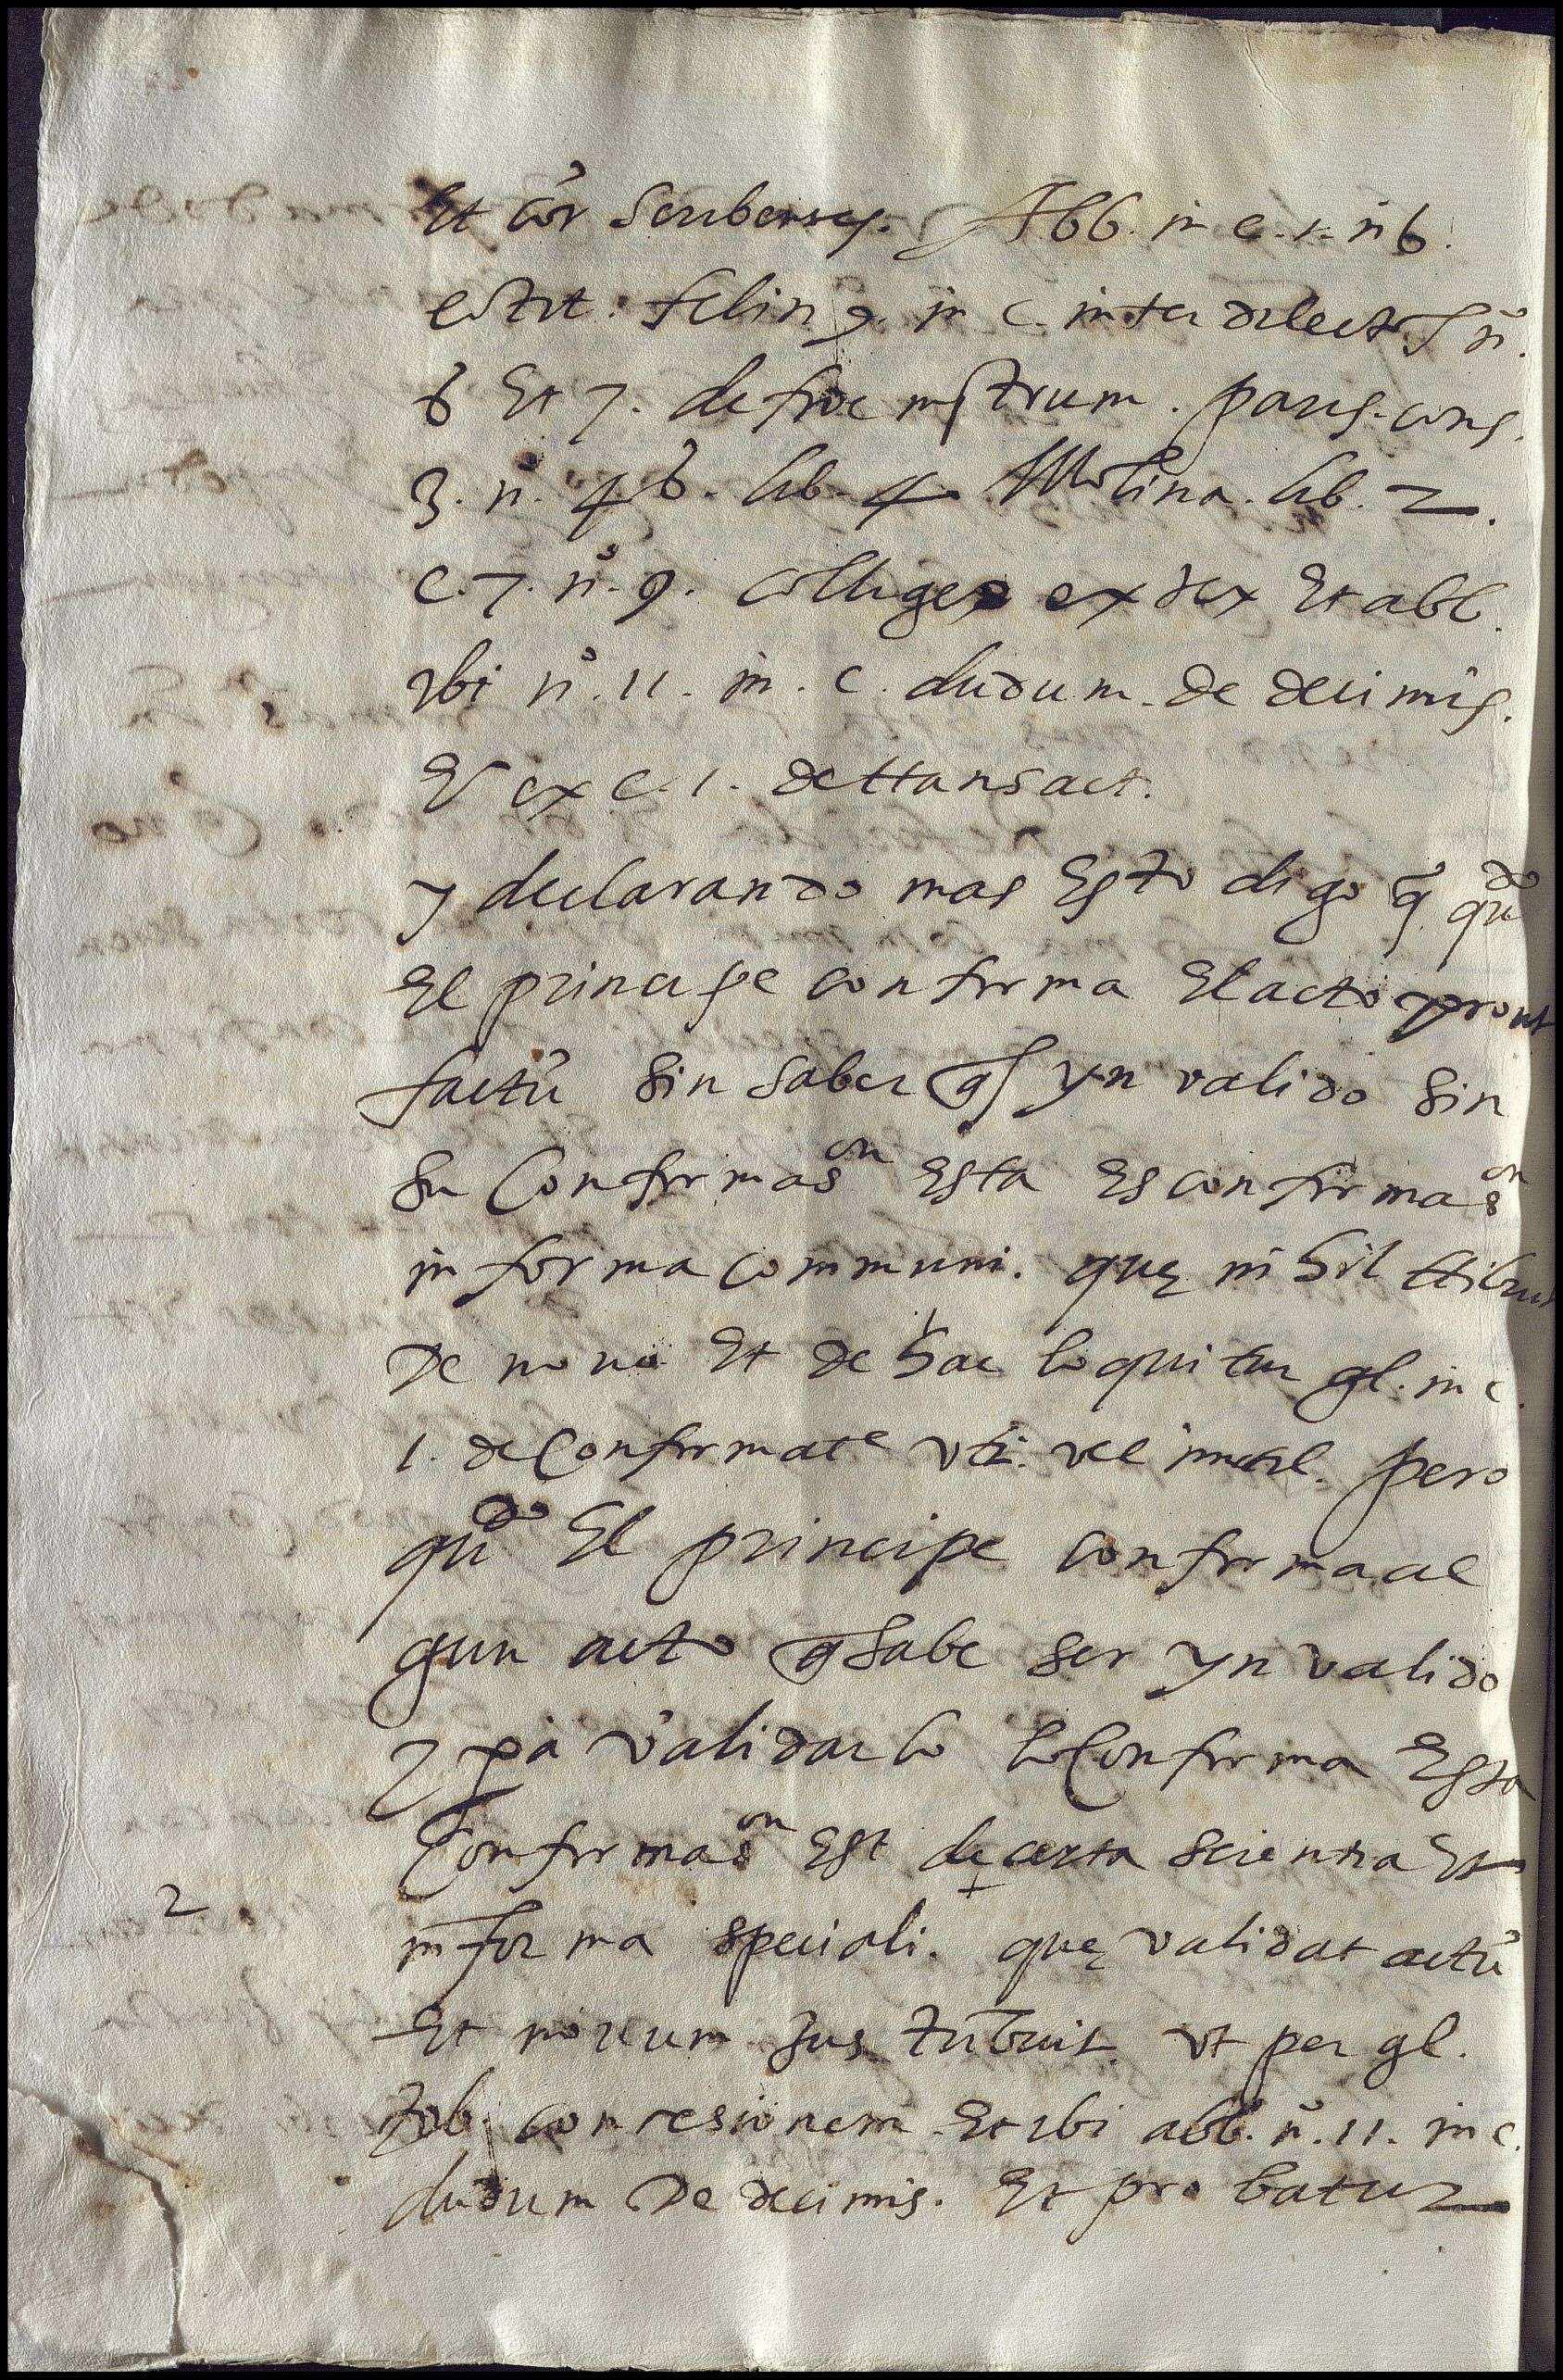 Et cõr scribentes. Abb. in c. 1. nº 6.
eod tit. felinꝰ. in c. inter dilectos nº.
6 Et 7. de fide instrum. paris. cons.
3. nº. 46. lib. 4. Molina. lib. 2.
c. 7. nº. 9. colliges ex tex Et abb.
ibi nº. 11. in. c. dudum. de decimis.
Et ex c. 1. de ttansact.
y declarando mas Esto digo q̃ qudo
El principe confirma El acto prout
factũ sin saber q̃ es ynvalido sin
su Confirmason Esta Es confirmason
in forma communi. quę nihil ttibuit
de novo Et de hac loquitur gl. in c.
1. de Confirmat.e vti. vel inutil. pero
qudo El principe confirma al
gun acto q̃ sabe ser ynvalido
y pa validarlo lo Confirma Esta
Confirmason Est de certa scientia Et
2
in forma speciali. quę validat actũ
Et novum Jus tribuit. vt per gl.
verb. concesionem. Et ibi abb. nº. 11. in c.
dudum De decimis. Et probatur